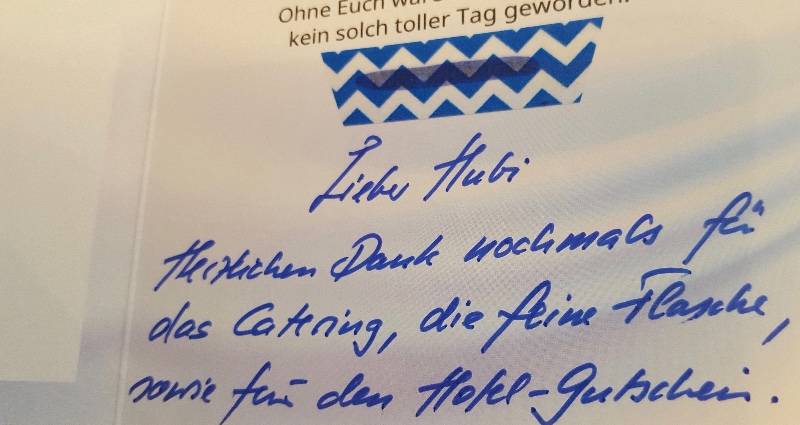 Ohne Euch wär
kein solch toller Tag geworden.
Lieber Hubi
Herzlichen Dank nochmals für
das Catering, die feine Flasche,
sowie für den Hotel-Gutschein.